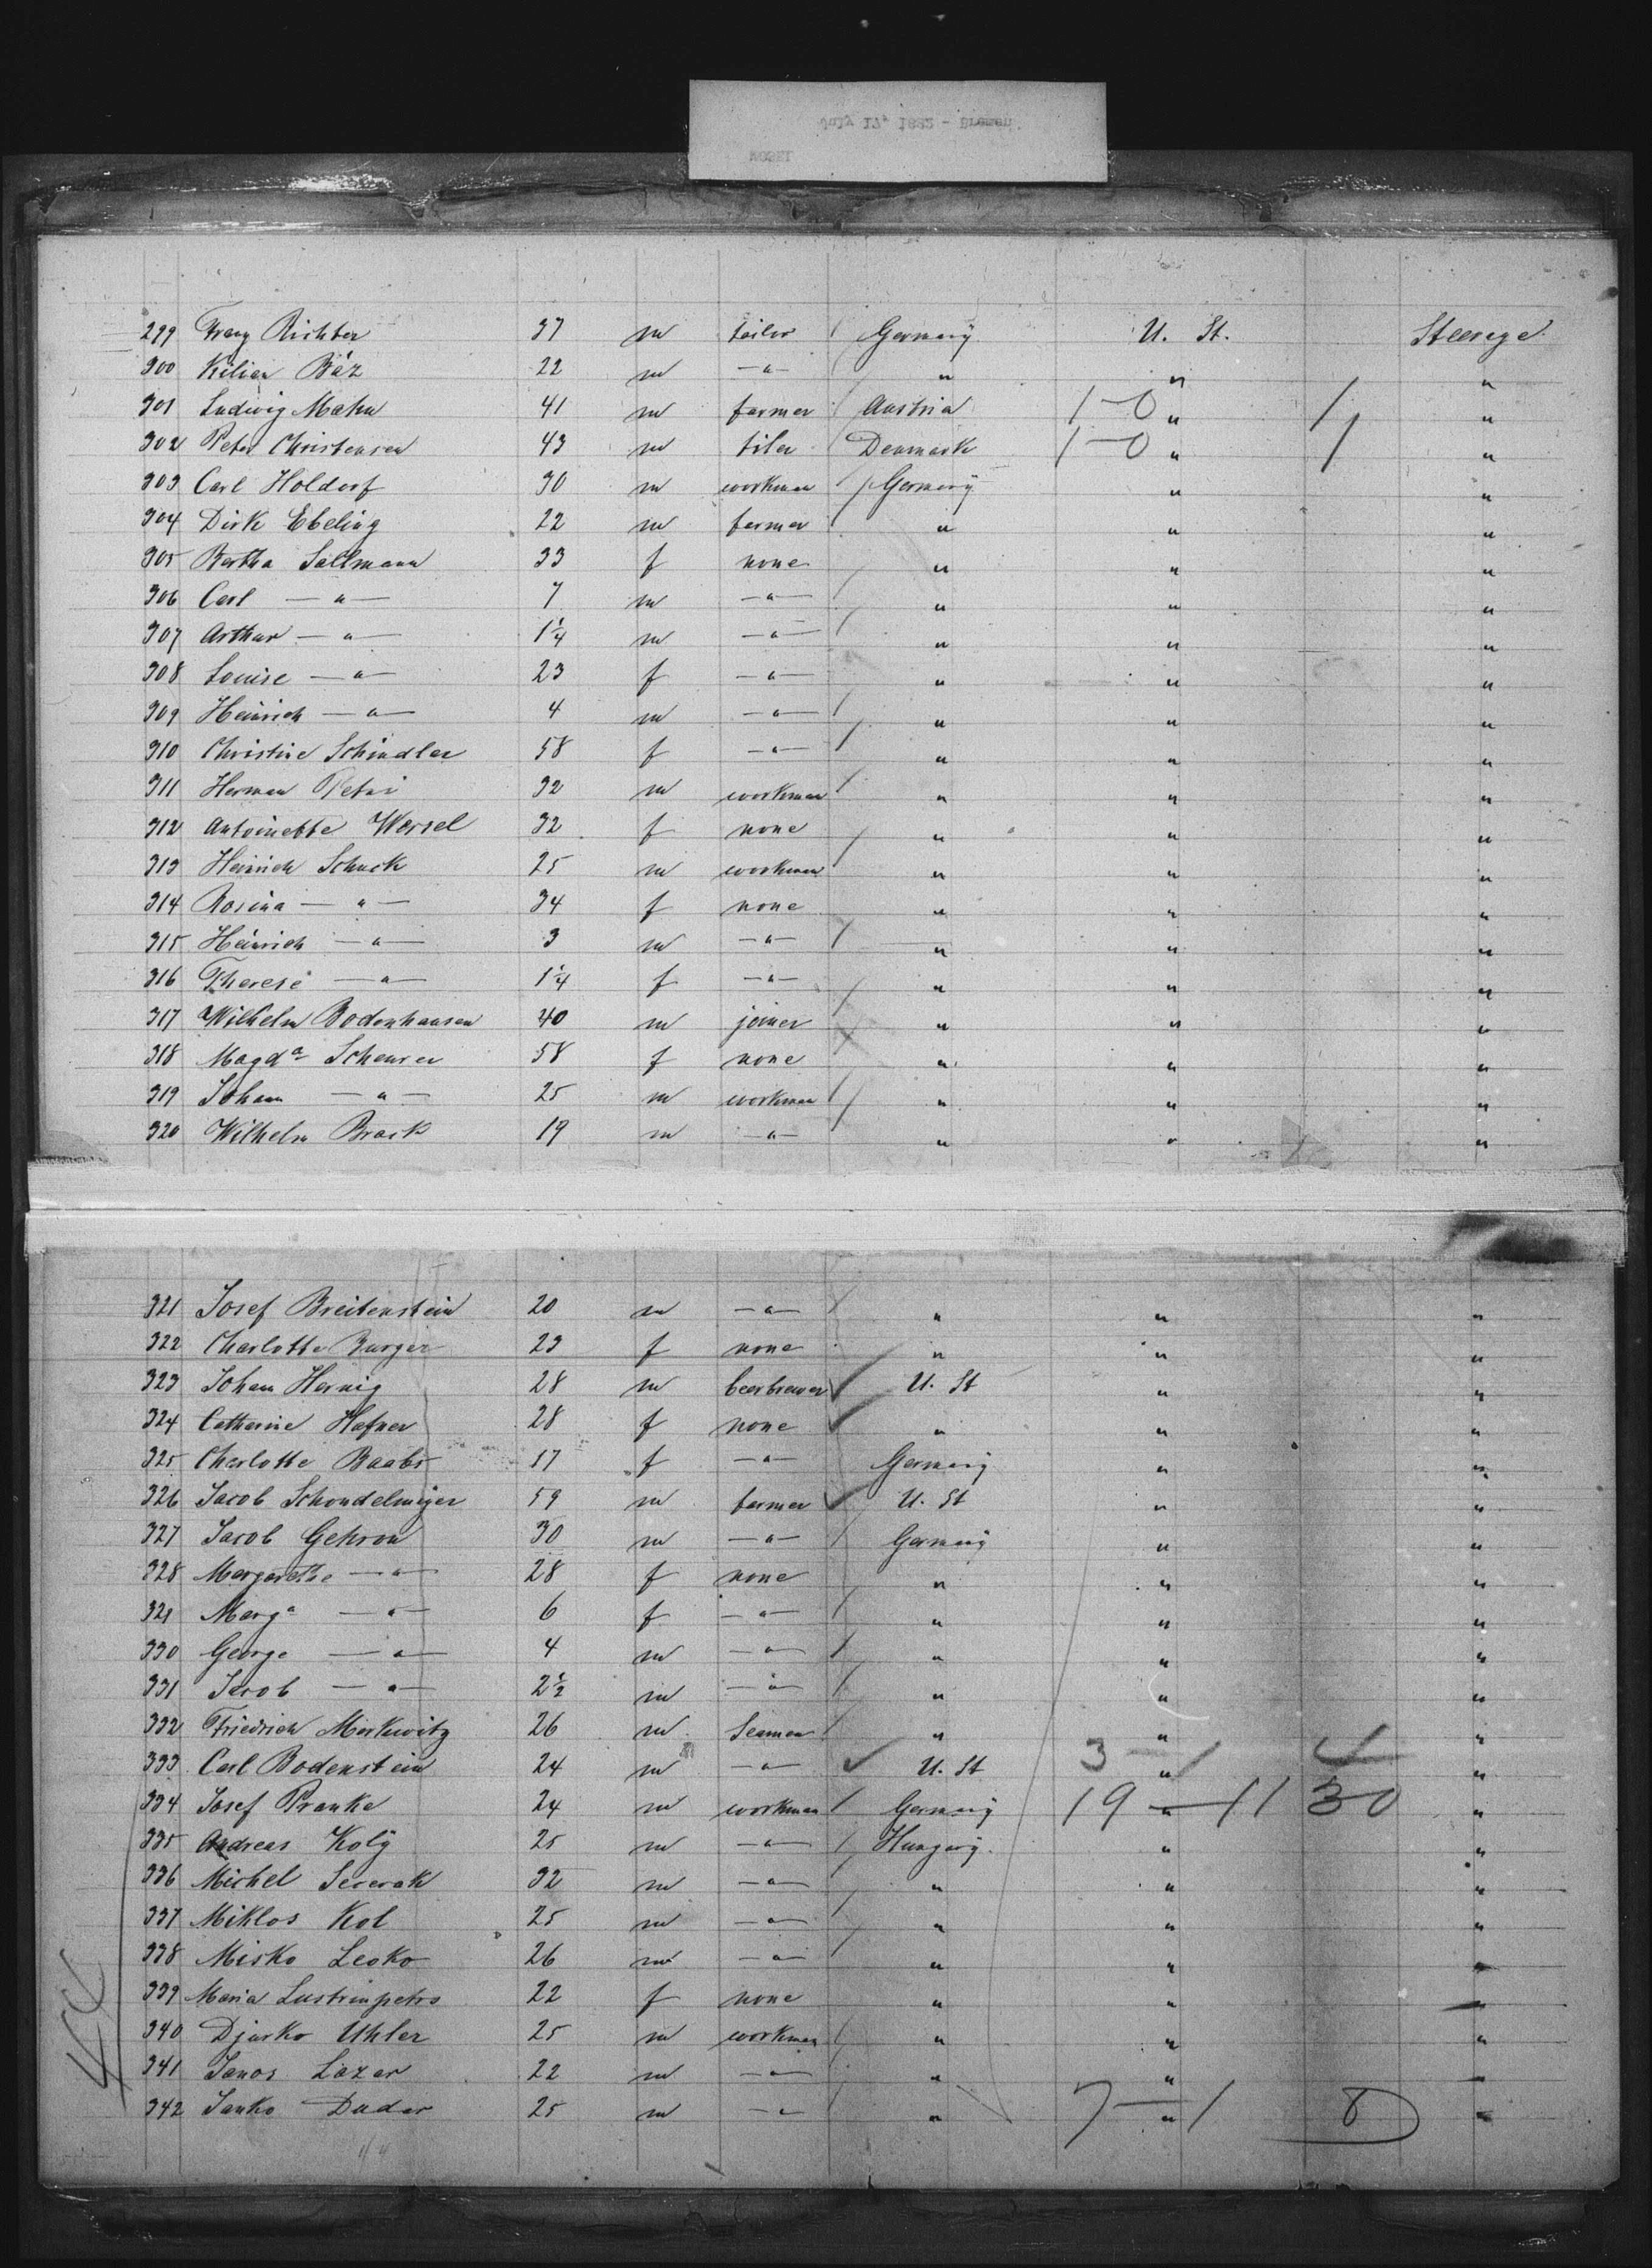 July 17, 1882 - Bremen
MOSEL
299 Franz Richter 37 m tailor Germany U. St. Steerage
300 Kilian Bäz 22 m —"— " " "
301 Ludwig Mahn 41 m farmer Austria 1-0 " 1 "
302 Peter Christensen 43 m tiler Denmark 1-0 " 1 "
303 Carl Holdorf 30 m workman Germany " "
304 Dirk Ebeling 22 m farmer " " "
305 Bertha Sallmann 33 f none " " "
306 Carl —"— 7 m —"— " " "
307 Arthur —"— 1 1/4 m —"— " " "
308 Louise —"— 23 f —"— " " "
309 Heinrich —"— 4 m —"— " " "
310 Christine Schindler 58 f —"— " " "
311 Herman Petri 32 m workman " " "
312 Antoinette Wessel 32 f none " " "
313 Heinrich Schuck 25 m workman " " "
314 Rosina —"— 34 f none " " "
315 Heinrich —"— 3 m —"— " " "
316 Therese —"— 1 1/4 f —"— " " "
317 Wilhelm Bodenhausen 40 m joiner " " "
318 Magda Scheurer 58 f none " " "
319 Johann —"— 25 m workman " " "
320 Wilhelm Brack 19 m —"— " " "
321 Josef Breitenstein 20 m —"— " " "
322 Charlotte Burger 23 f none " " "
323 Johann Hernig 28 m beerbrewer U. St " "
324 Catharine Hafner 28 f none " " "
325 Charlotte Baabs 17 f —"— Germany " "
326 Jacob Schondelmeyer 59 m farmer U. St " "
327 Jacob Gehron 30 m —"— Germany " "
328 Margarethe —"— 28 f none " " "
329 Marga —"— 6 f —"— " " "
330 George —"— 4 m —"— " " "
331 Jacob —"— 2 1/2 m —"— " " "
332 Friedrich Merkwitz 26 m Seaman " " "
333 Carl Bodenstein 24 m —"— U. St 3 — 1 " 4 "
334 Josef Pranke 24 m workman Germany 19 — 11 " 30 "
335 Andreas Koly 25 m —"— Hungary " "
336 Michel Severak 32 m —"— " " "
337 Miklos Kol 25 m —"— " " "
338 Misko Lesko 26 m —"— " " "
339 Maria Lustrinpetro 22 f none " " "
340 Djurko Uhler 25 m workman " " "
341 Janos Lazar 22 m —"— " " "
342 Janko Dudar 25 m —"— " 7 — 1 " 8 "
44